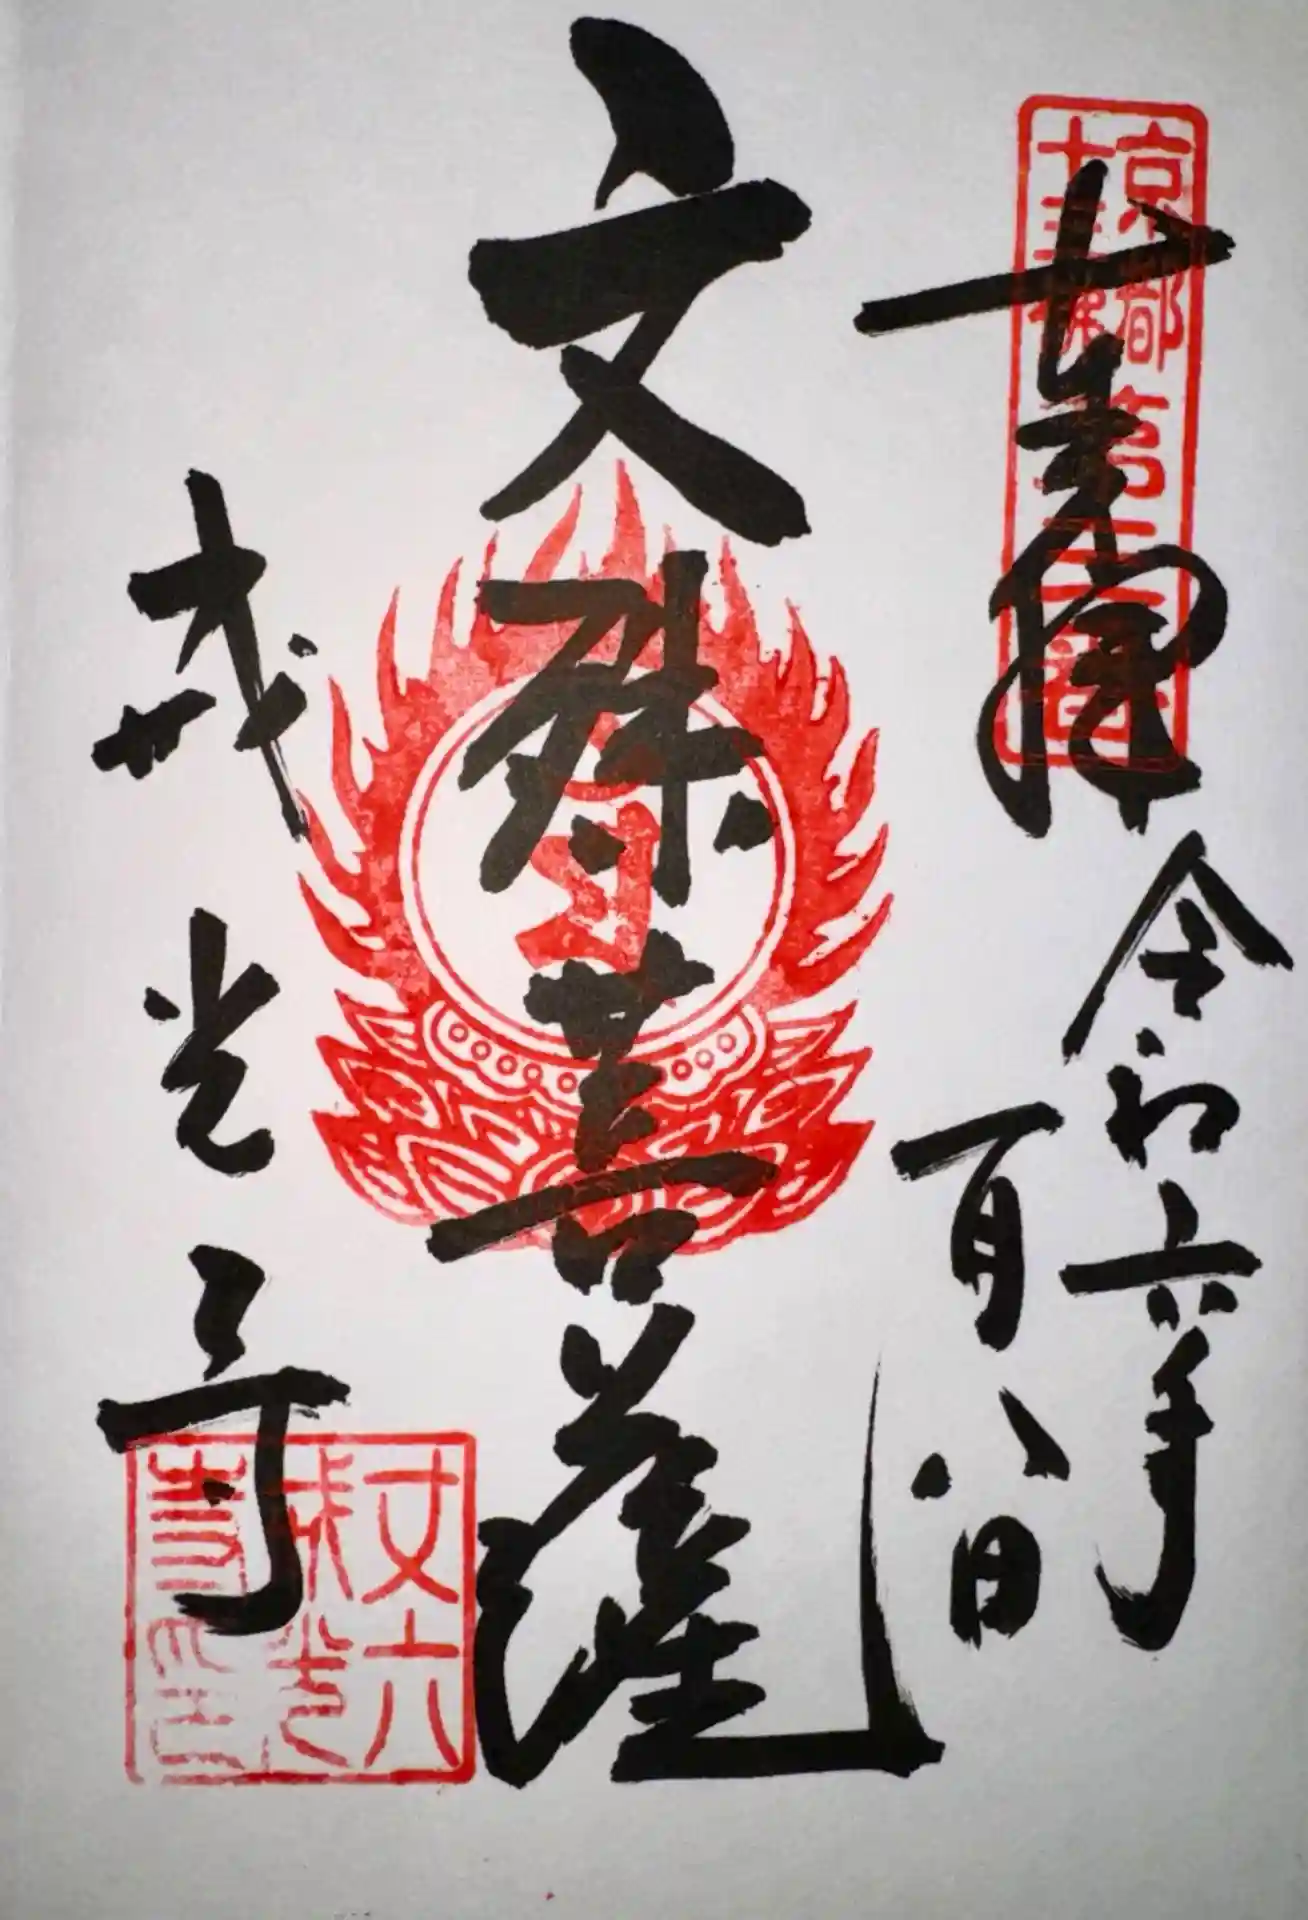 京都
十三佛
第三番
奉拝
令和六年
一月八日
文殊菩薩
戒光寺
丈六
戒光
寺印